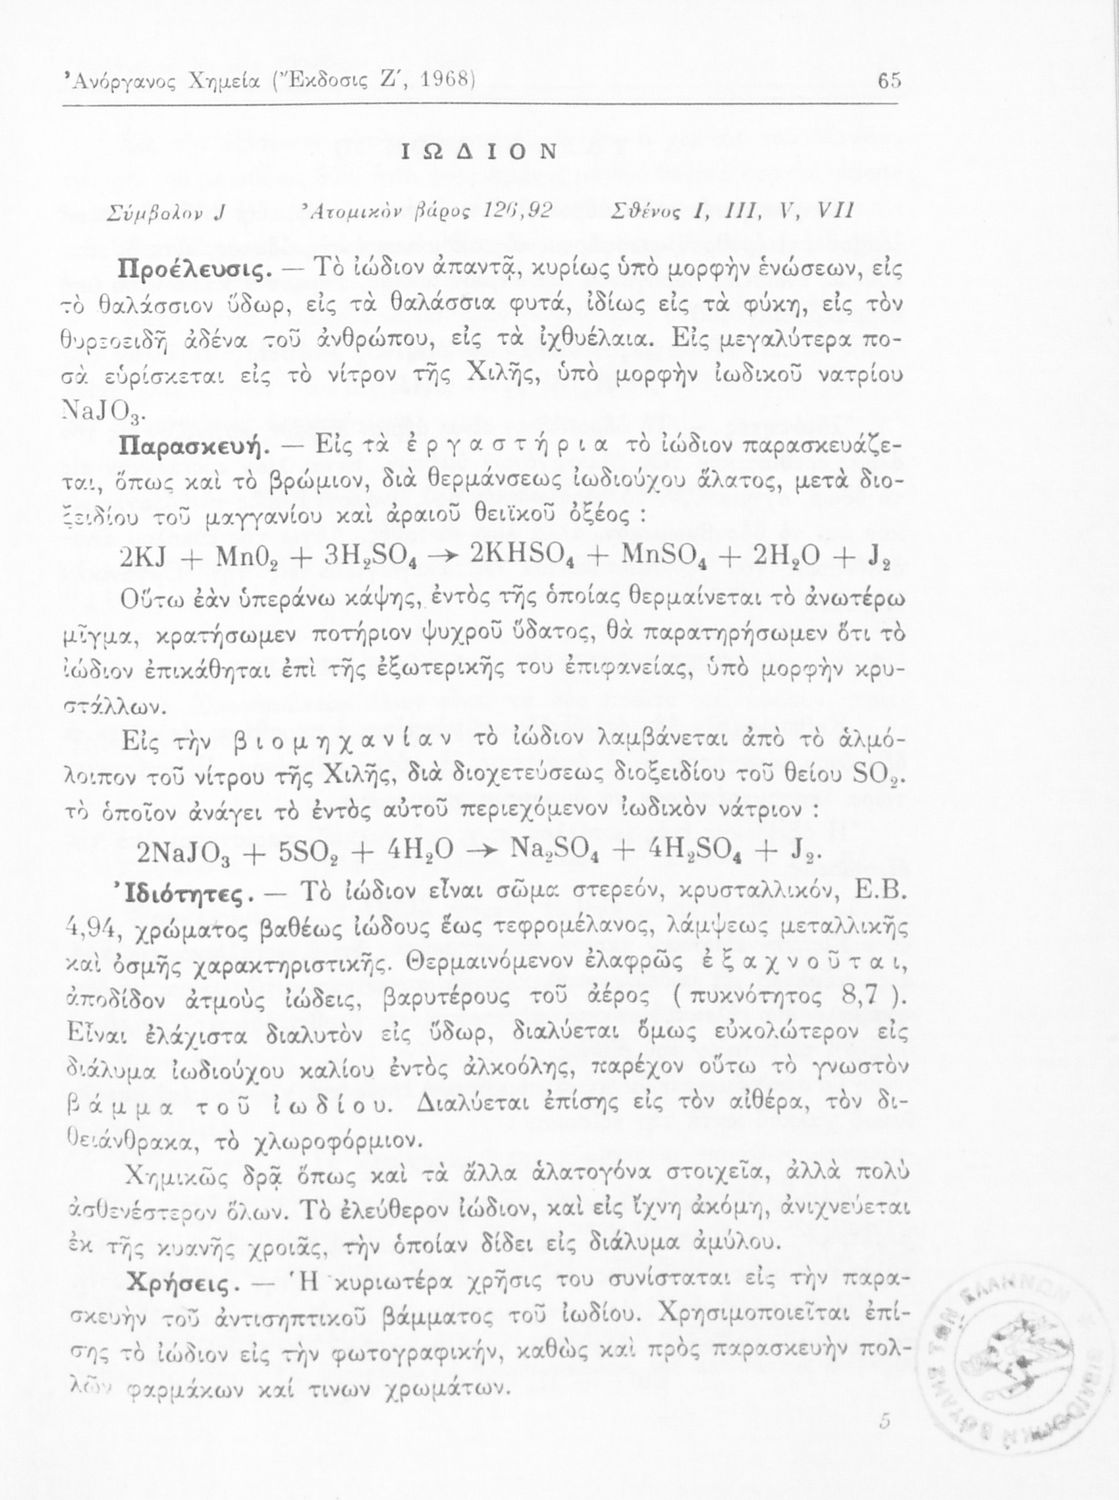 Ἀνόργανος Χημεία (Ἔκδοσις Ζ΄, 1968) 65
ΙΩΔΙΟΝ
Σύμβολον J Ἀτομικὸν βάρος 126,92 Σθένος I, III, V, VII
Προέλευσις. — Τὸ ἰώδιον ἀπαντᾷ, κυρίως ὑπὸ μορφὴν ἑνώσεων, εἰς
τὸ θαλάσσιον ὕδωρ, εἰς τὰ θαλάσσια φυτά, ἰδίως εἰς τὰ φύκη, εἰς τὸν
θυρεοειδῆ ἀδένα τοῦ ἀνθρώπου, εἰς τὰ ἰχθυέλαια. Εἰς μεγαλύτερα πο-
σὰ εὑρίσκεται εἰς τὸ νίτρον τῆς Χιλῆς, ὑπὸ μορφὴν ἰωδικοῦ νατρίου
NaJO₃.
Παρασκευή. — Εἰς τὰ ἐργαστήρια τὸ ἰώδιον παρασκευάζε-
ται, ὅπως καὶ τὸ βρώμιον, διὰ θερμάνσεως ἰωδιούχου ἅλατος, μετὰ διο-
ξειδίου τοῦ μαγγανίου καὶ ἀραιοῦ θειϊκοῦ ὀξέος :
2KJ + MnO₂ + 3H₂SO₄ → 2KHSO₄ + MnSO₄ + 2H₂O + J₂
Οὕτω ἐὰν ὑπεράνω κάψης, ἐντὸς τῆς ὁποίας θερμαίνεται τὸ ἀνωτέρω
μῖγμα, κρατήσωμεν ποτήριον ψυχροῦ ὕδατος, θὰ παρατηρήσωμεν ὅτι τὸ
ἰώδιον ἐπικάθηται ἐπὶ τῆς ἐξωτερικῆς του ἐπιφανείας, ὑπὸ μορφὴν κρυ-
στάλλων.
Εἰς τὴν βιομηχανίαν τὸ ἰώδιον λαμβάνεται ἀπὸ τὸ ἁλμό-
λοιπον τοῦ νίτρου τῆς Χιλῆς, διὰ διοχετεύσεως διοξειδίου τοῦ θείου SO₂.
τὸ ὁποῖον ἀνάγει τὸ ἐντὸς αὐτοῦ περιεχόμενον ἰωδικὸν νάτριον :
2NaJO₃ + 5SO₂ + 4H₂O → Na₂SO₄ + 4H₂SO₄ + J₂.
Ἰδιότητες. — Τὸ ἰώδιον εἶναι σῶμα στερεόν, κρυσταλλικόν, Ε.Β.
4,94, χρώματος βαθέως ἰώδους ἕως τεφρομέλανος, λάμψεως μεταλλικῆς
καὶ ὀσμῆς χαρακτηριστικῆς. Θερμαινόμενον ἐλαφρῶς ἐξαχνοῦται,
ἀποδίδον ἀτμοὺς ἰώδεις, βαρυτέρους τοῦ ἀέρος (πυκνότητος 8,7 ).
Εἶναι ἐλάχιστα διαλυτὸν εἰς ὕδωρ, διαλύεται ὅμως εὐκολώτερον εἰς
διάλυμα ἰωδιούχου καλίου ἐντὸς ἀλκοόλης, παρέχον οὕτω τὸ γνωστὸν
βάμμα τοῦ ἰωδίου. Διαλύεται ἐπίσης εἰς τὸν αἰθέρα, τὸν δι-
θειάνθρακα, τὸ χλωροφόρμιον.
Χημικῶς δρᾷ ὅπως καὶ τὰ ἄλλα ἁλατογόνα στοιχεῖα, ἀλλὰ πολὺ
ἀσθενέστερον ὅλων. Τὸ ἐλεύθερον ἰώδιον, καὶ εἰς ἴχνη ἀκόμη, ἀνιχνεύεται
ἐκ τῆς κυανῆς χροιᾶς, τὴν ὁποίαν δίδει εἰς διάλυμα ἀμύλου.
Χρήσεις. — Ἡ κυριωτέρα χρῆσις του συνίσταται εἰς τὴν παρα-
σκευὴν τοῦ ἀντισηπτικοῦ βάμματος τοῦ ἰωδίου. Χρησιμοποιεῖται ἐπί-
σης τὸ ἰώδιον εἰς τὴν φωτογραφικήν, καθὼς καὶ πρὸς παρασκευὴν πολ-
λῶν φαρμάκων καί τινων χρωμάτων.
5
ΒΙΒΛΙΟΘΗΚΗ ΒΟΥΛΗΣ ΤΩΝ ΕΛΛΗΝΩΝ